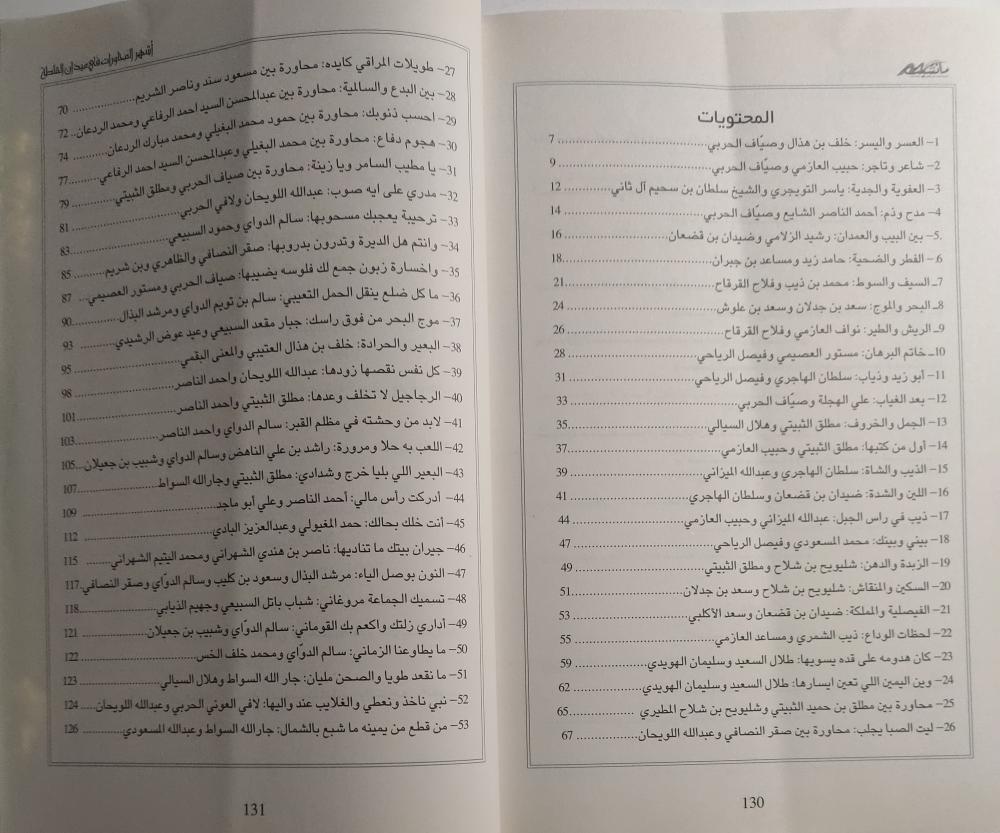 المحتويات
1– العسر واليسر: خلف بن هذال وصيّاف الحربي........................ 7
2– شاعر وتاجر: حبيب العازمي وصيّاف الحربي........................ 9
3– العفوية والجدية: ياسر التويجري والشيخ سلطان بن سحيم آل ثاني............ 12
4– مدح وذم: أحمد الناصر الشايع وصيّاف الحربي........................ 14
5– بين البيب والعمدان: رشيد الزلامي وضيدان بن قضعان........................ 16
6– الفطر والضحية: حامد زيد ومساعد بن جبران........................ 18
7ـ السيف والسوط: محمد بن ذيب وفلاج القرقاح........................ 21
8ـ البحر والموج: سعد بن جدلان وسعد بن علوش........................ 24
9ـ الريش والطير: نواف العازمي وفلاح القرقاح........................ 26
10ـ خاتم البرهان: مستور العصيمي وفيصل الرياحي........................ 28
11– أبو زيد وذياب: سلطان الهاجري وفيصل الرياحي........................ 31
12– بعد الغياب: علي الهجلة وصيّاف الحربي........................ 33
13– الجمل والخروف: مطلق الثبيتي وهلال السيالي........................ 35
14– أول من كتبها: مطلق الثبيتي وحبيب العازمي........................ 37
15– الذيب والشاة: سلطان الهاجري وعبدالله الميزاني........................ 39
16– اللين والشدة: ضيدان بن قضعان وسلطان الهاجري........................ 41
17– ذيب في راس الجبل: عبدالله الميزاني وحبيب العازمي........................ 44
18– بيني وبينك: محمد المسعودي وفيصل الرياحي........................ 47
19– الزبدة والدهن: شليويح بن شلاح ومطلق الثبيتي........................ 49
20– السكين والمنقاش: شليويح بن شلاح وسعد بن جدلان........................ 51
21– الفيصلية والمملكة: ضيدان بن قضعان وسعد الأكلبي........................ 53
22– لحظات الوداع: ذيب الشمري ومساعد العازمي........................ 55
23– كان هدومه على قده يسويها: طلال السعيد وسليمان الهويدي........................ 59
24– وين اليمين اللي تعين ايسارها: طلال السعيد وسليمان الهويدي.................. 62
25– محاورة بين مطلق بن حميد الثبيتي وشليويح بن شلاح المطيري .................. 65
26– ليت الصبا يجلب: محاورة بين صقر النصافي وعبدالله اللويحان.................. 67
130
أشهر المحاورات في ميدان القلطة
27– طويلات المراقي كايده: محاورة بين مسعود سند وناصر الشريم.................. 70
28– بين البدع والسالمية: محاورة بين عبدالمحسن السيد احمد الرفاعي ومحمد الردعان.. 72
29– احسب ذنوبك: محاورة بين حمود محمد البغيلي ومحمد مبارك الردعان.......... 74
30– هجوم دفاع: محاورة بين محمد البغيلي وعبدالمحسن السيد احمد الرفاعي........ 77
31– يا مطيب السامر ويا زينة: محاورة بين صياف الحربي ومطلق الثبيتي.......... 79
32– مدري على ايه صوب: عبدالله اللويحان ولافي الحربي........................ 81
33– ترحيبة يعجبك مسحوبها: سالم الدواي وحمود السبيعي........................ 83
34– وانتم هل الديرة وتدرون بدروبها: صقر النصافي والظاهري وبن شريم.......... 85
35– واخسارة زبون جمع لك فلوسه يضيبها: صياف الحربي ومستور العصيمي... 87
36– ما كل ضلع ينقل الحمل التعيبي: سالم بن تويم الدواي ومرشد البذال.......... 90
37– موج البحر من فوق راسك: جبار مقعد السبيعي وعيد عوض الرشيدي.......... 93
38– البعير والحرادة: خلف بن هذال العتيبي والمعنى البقمي........................ 95
39– كل نفس نقصها زودها: عبدالله اللويحان واحمد الناصر........................ 98
40– الرجاجيل لا تخلف وعدها: مطلق الثبيتي واحمد الناصر........................ 101
41– لابد من وحشته في مظلم القبر: سالم الدواي واحمد الناصر.................. 103
42– اللعب به حلا ومرورة: راشد بن علي الناهض وسالم الدواي وشبيب بن جعيلان... 105
43– البعير اللي بليا خرج وشدادي: مطلق الثبيتي وجارالله السواط.................. 107
44– أدركت رأس مالي: أحمد الناصر وعلي أبو ماجد........................ 109
45– أنت خلك بحالك: حمد المغيولي وعبدالعزيز البادي........................ 112
46– جيران بيتك ما تناديها: ناصر بن هندي الشهراني ومحمد اليتيم الشهراني........ 115
47– النون بوصل الياء: مرشد البذال وسعود بن كليب وسالم الدوّاي وصقر النصافي. 117
48– تسميك الجماعة مروغاني: شباب باتل السبيعي وجهيم الذيابي.................. 118
49– أداري زلتك واكعم بك القوماني: سالم الدوّاي وشبيب بن جعيلان.............. 121
50– ما يطاوعنا الزماني: سالم الدوّاي ومحمد خلف الخس........................ 122
51– ما نقعد طويا والصحن مليان: جار الله السواط وهلال السيالي.................. 123
52– نبي ناخذ ونعطي والغلايب عند واليها: لافي العوني الحربي وعبدالله اللويحان..... 124
53– من قطع من يمينه ما شبع بالشمال: جارالله السواط وعبدالله المسعودي.......... 126
131